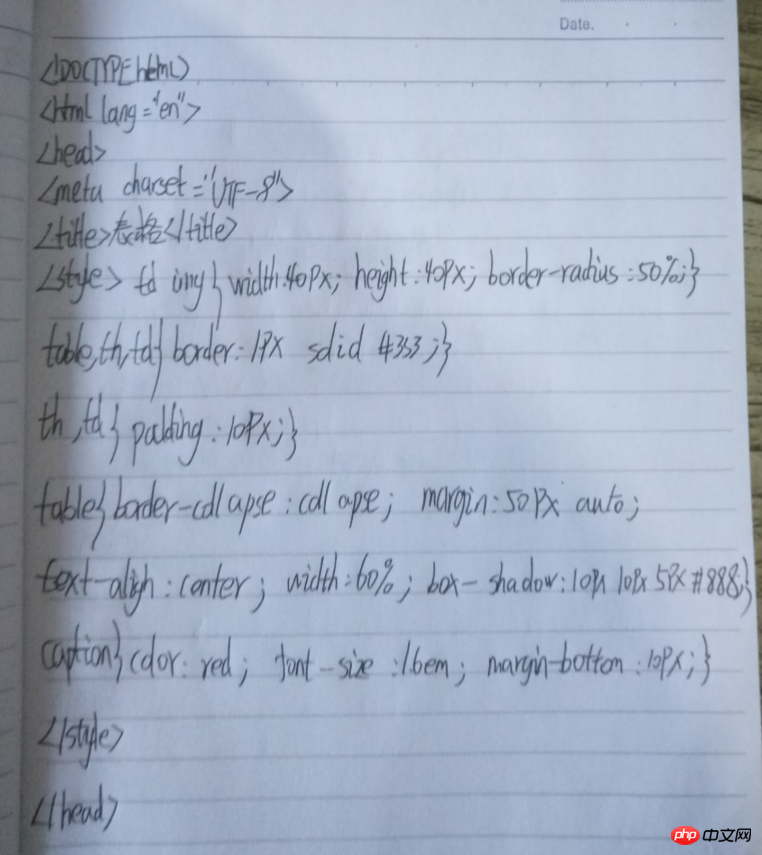 Date.
<!DOCTYPE html>
<html lang="en">
<head>
<meta charset="UTF-8">
<title>表格</title>
<style> td img{ width:40px; height:40px; border-radius:50%;}
table,th,td{ border:1px solid #333;}
th,td{ padding:10px;}
table{ border-collapse:collapse; margin:50px auto;
text-align:center; width:60%; box-shadow:10px 10px 5px #888;}
caption{ color:red; font-size:1.6em; margin-bottom:10px;}
</style>
</head>
php中文网